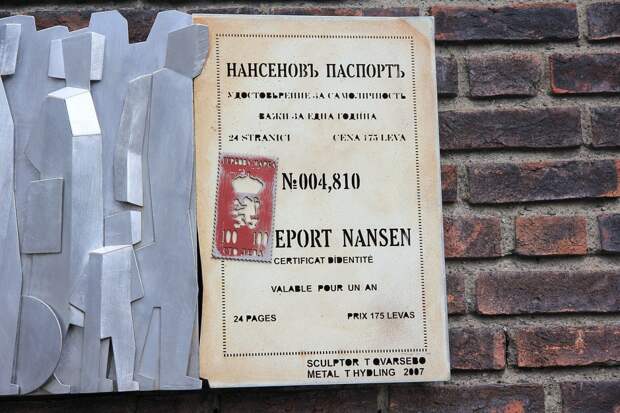 НАНСЕНОВЪ ПАСПОРТЪ
УДОСТОВѢРЕНИЕ ЗА САМОЛИЧНОСТЬ
ВАЖИ ЗА ЕДНА ГОДИНА
24 STRANICI CENA 175 LEVA
№004,810
100 100
EPORT NANSEN
CERTIFICAT DÌDENTITÉ
VALABLE POUR UN AN
24 PAGES PRIX 175 LEVAS
SCULPTOR T OVARSEBO
METAL T HYDLING 2007